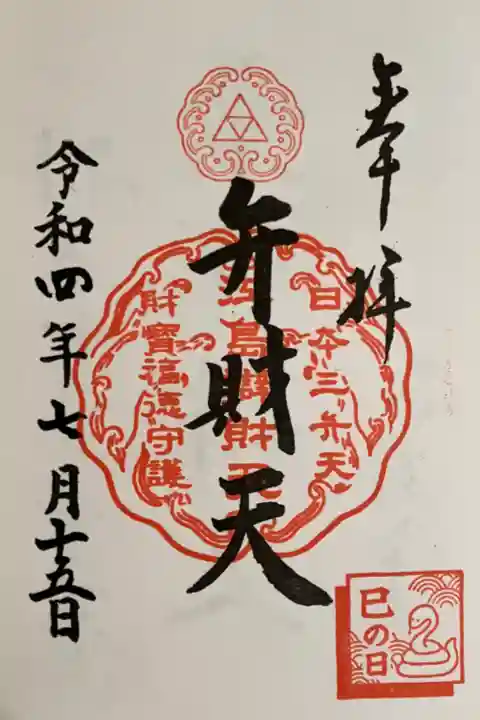 奉拝
日本三弁天
江島辯財天
財寶福徳守護
弁財天
令和四年七月十五日
巳の日